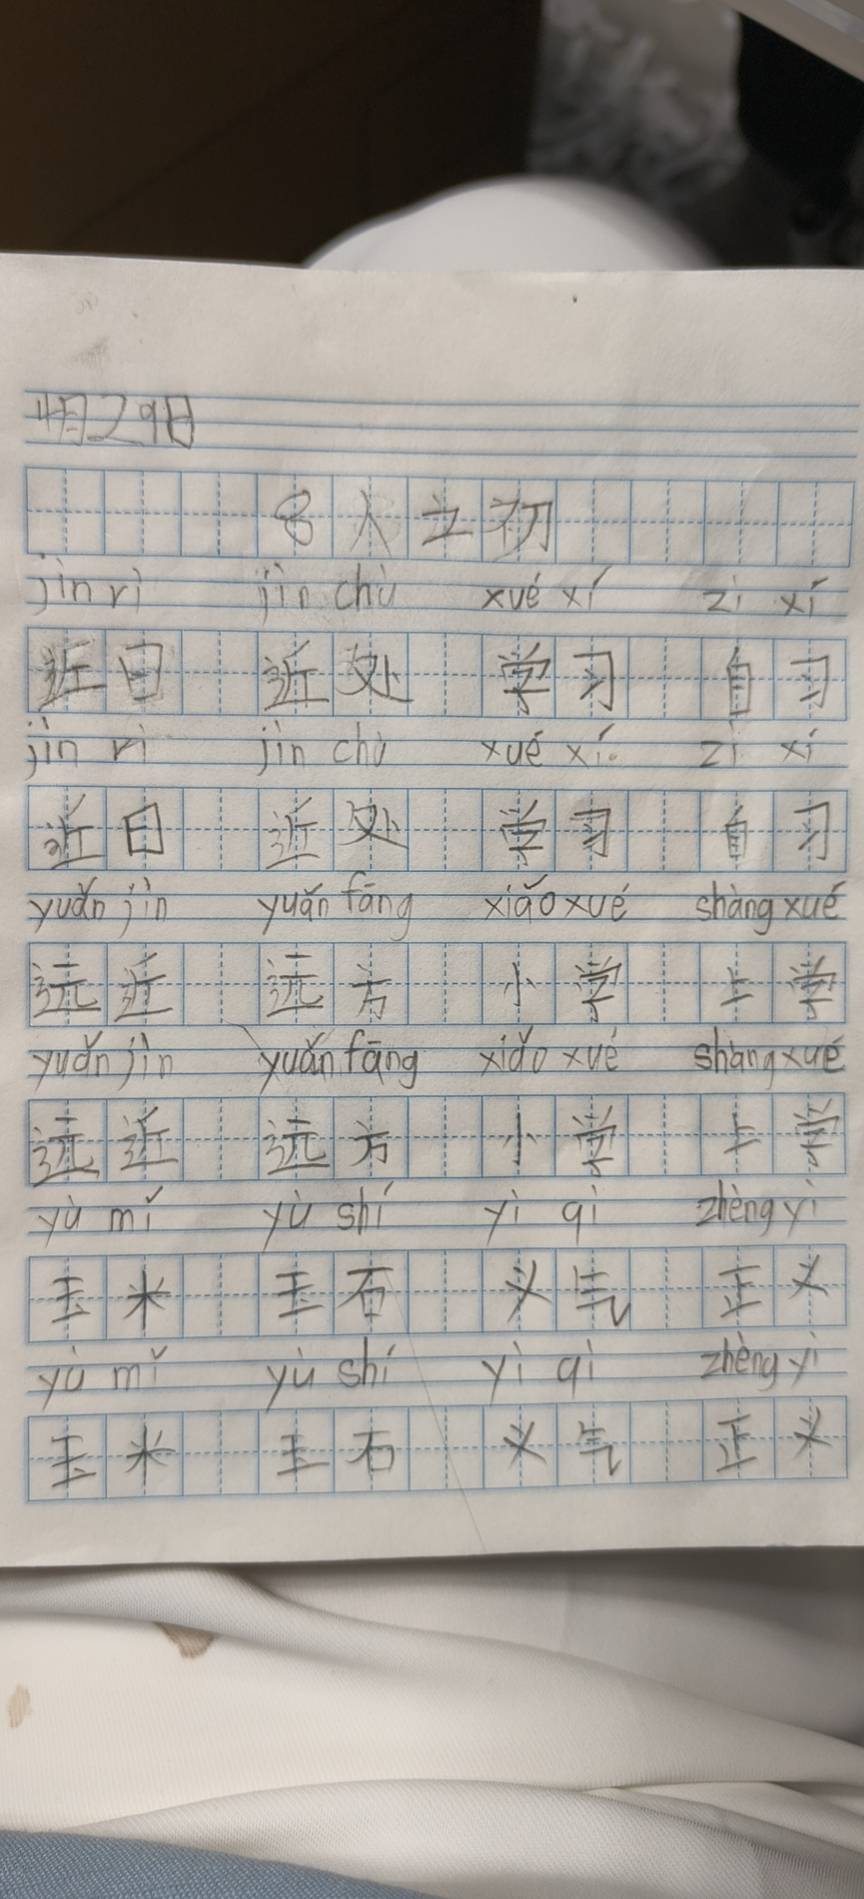 4月29日
8 人之初
jìn rì jìn chù xué xí zì xí
近日 近处 学习 自习
jìn rì jìn chù xué xí zì xí
近日 近处 学习 自习
yuǎn jìn yuǎn fāng xiǎo xué shàng xué
远近 远方 小学 上学
yuǎn jìn yuǎn fāng xiǎo xué shàng xué
远近 远方 小学 上学
yù mǐ yù shí yì qì zhèng yì
玉米 玉石 义气 正义
yù mǐ yù shí yì qì zhèng yì
玉米 玉石 义气 正义